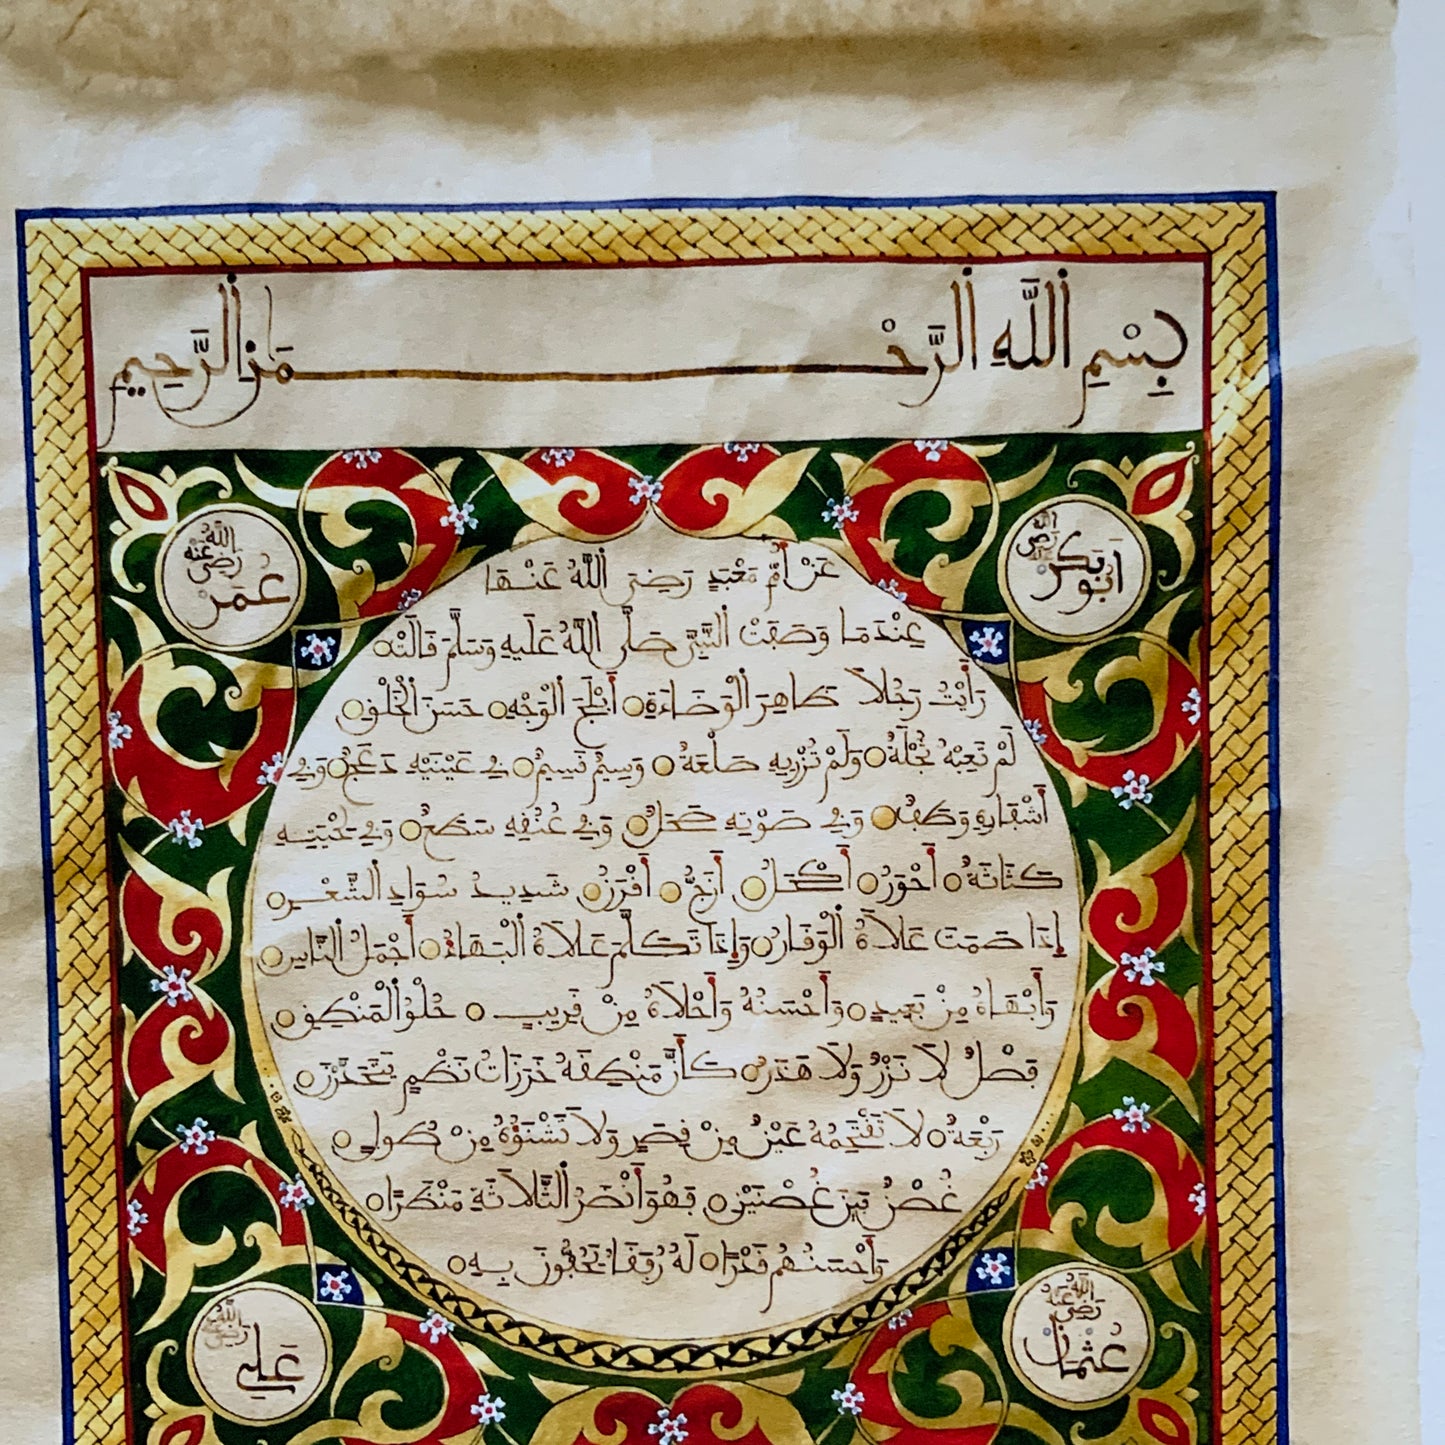 بِسْمِ اللَّهِ الرَّحْمَنِ الرَّحِيمِ
أَبُو بَكْر رَضِيَ اللَّهُ عَنْهُ
عُمَر رَضِيَ اللَّهُ عَنْهُ
عَنْ أُمِّ مَعْبَدٍ رَضِيَ اللَّهُ عَنْهَا
عِنْدَمَا وَصَفَتْ النَّبِيَّ صَلَّى اللَّهُ عَلَيْهِ وَسَلَّمَ قَالَتْ
رَأَيْتُ رَجُلاً ظَاهِرَ الْوَضَاءَةِ أَبْلَجَ الْوَجْهِ حَسَنَ الْخَلْقِ
لَمْ تَعِبْهُ ثُجْلَةٌ وَلَمْ تُزْرِيهِ صَلْعَةٌ وَسِيمٌ قَسِيمٌ فِي عَيْنَيْهِ دَعَجٌ وَفِي
أَشْفَارِهِ وَطَفٌ وَفِي صَوْتِهِ صَحَلٌ وَفِي عُنُقِهِ سَطَعٌ وَفِي لِحْيَتِهِ
كَثَاثَةٌ أَحْوَرُ أَكْحَلُ أَزَجُّ أَقْرَنُ شَدِيدُ سَوَادِ الشَّعْرِ
إِذَا صَمَتَ عَلاَهُ الْوَقَارُ وَإِذَا تَكَلَّمَ عَلاَهُ الْبَهَاءُ أَجْمَلُ النَّاسِ
وَأَبْهَاهُ مِنْ بَعِيدٍ وَأَحْسَنُهُ وَأَحْلاَهُ مِنْ قَرِيبٍ حُلْوُ الْمَنْطِقِ
فَصْلٌ لاَ نَزْرٌ وَلاَ هَذَرٌ كَأَنَّ مَنْطِقَهُ خَرَزَاتُ نَظْمٍ يَتَحَدَّرْنَ
رَبْعَةٌ لاَ تَقْتَحِمُهُ عَيْنٌ مِنْ قِصَرٍ وَلاَ تَشْنَؤُهُ مِنْ طُولٍ
غُصْنٌ بَيْنَ غُصْنَيْنِ فَهُوَ أَنْضَرُ الثَّلاَثَةِ مَنْظَرًا
وَأَحْسَنُهُمْ قَدْرًا لَهُ رُفَقَاءُ يَحُفُّونَ بِهِ
عُثْمَان رَضِيَ اللَّهُ عَنْهُ
عَلِي رَضِيَ اللَّهُ عَنْهُ